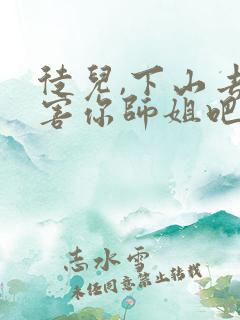 徒兒,下山去
害你師姐吧
志水雪
未经同意禁止转载